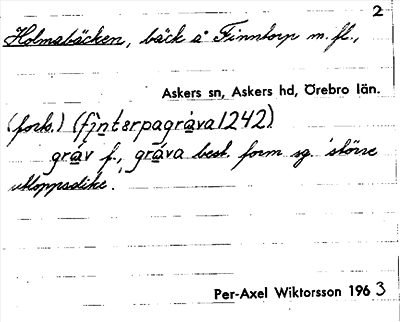 2
Holmabäcken, bäck å Finntorp m. fl.,
Askers sn, Askers hd, Örebro län.
(forts.) (fìntɛrpagráva 1242)
gráv f., gráva best. form sg. 'större
utloppsdike'.
Per-Axel Wiktorsson 1963